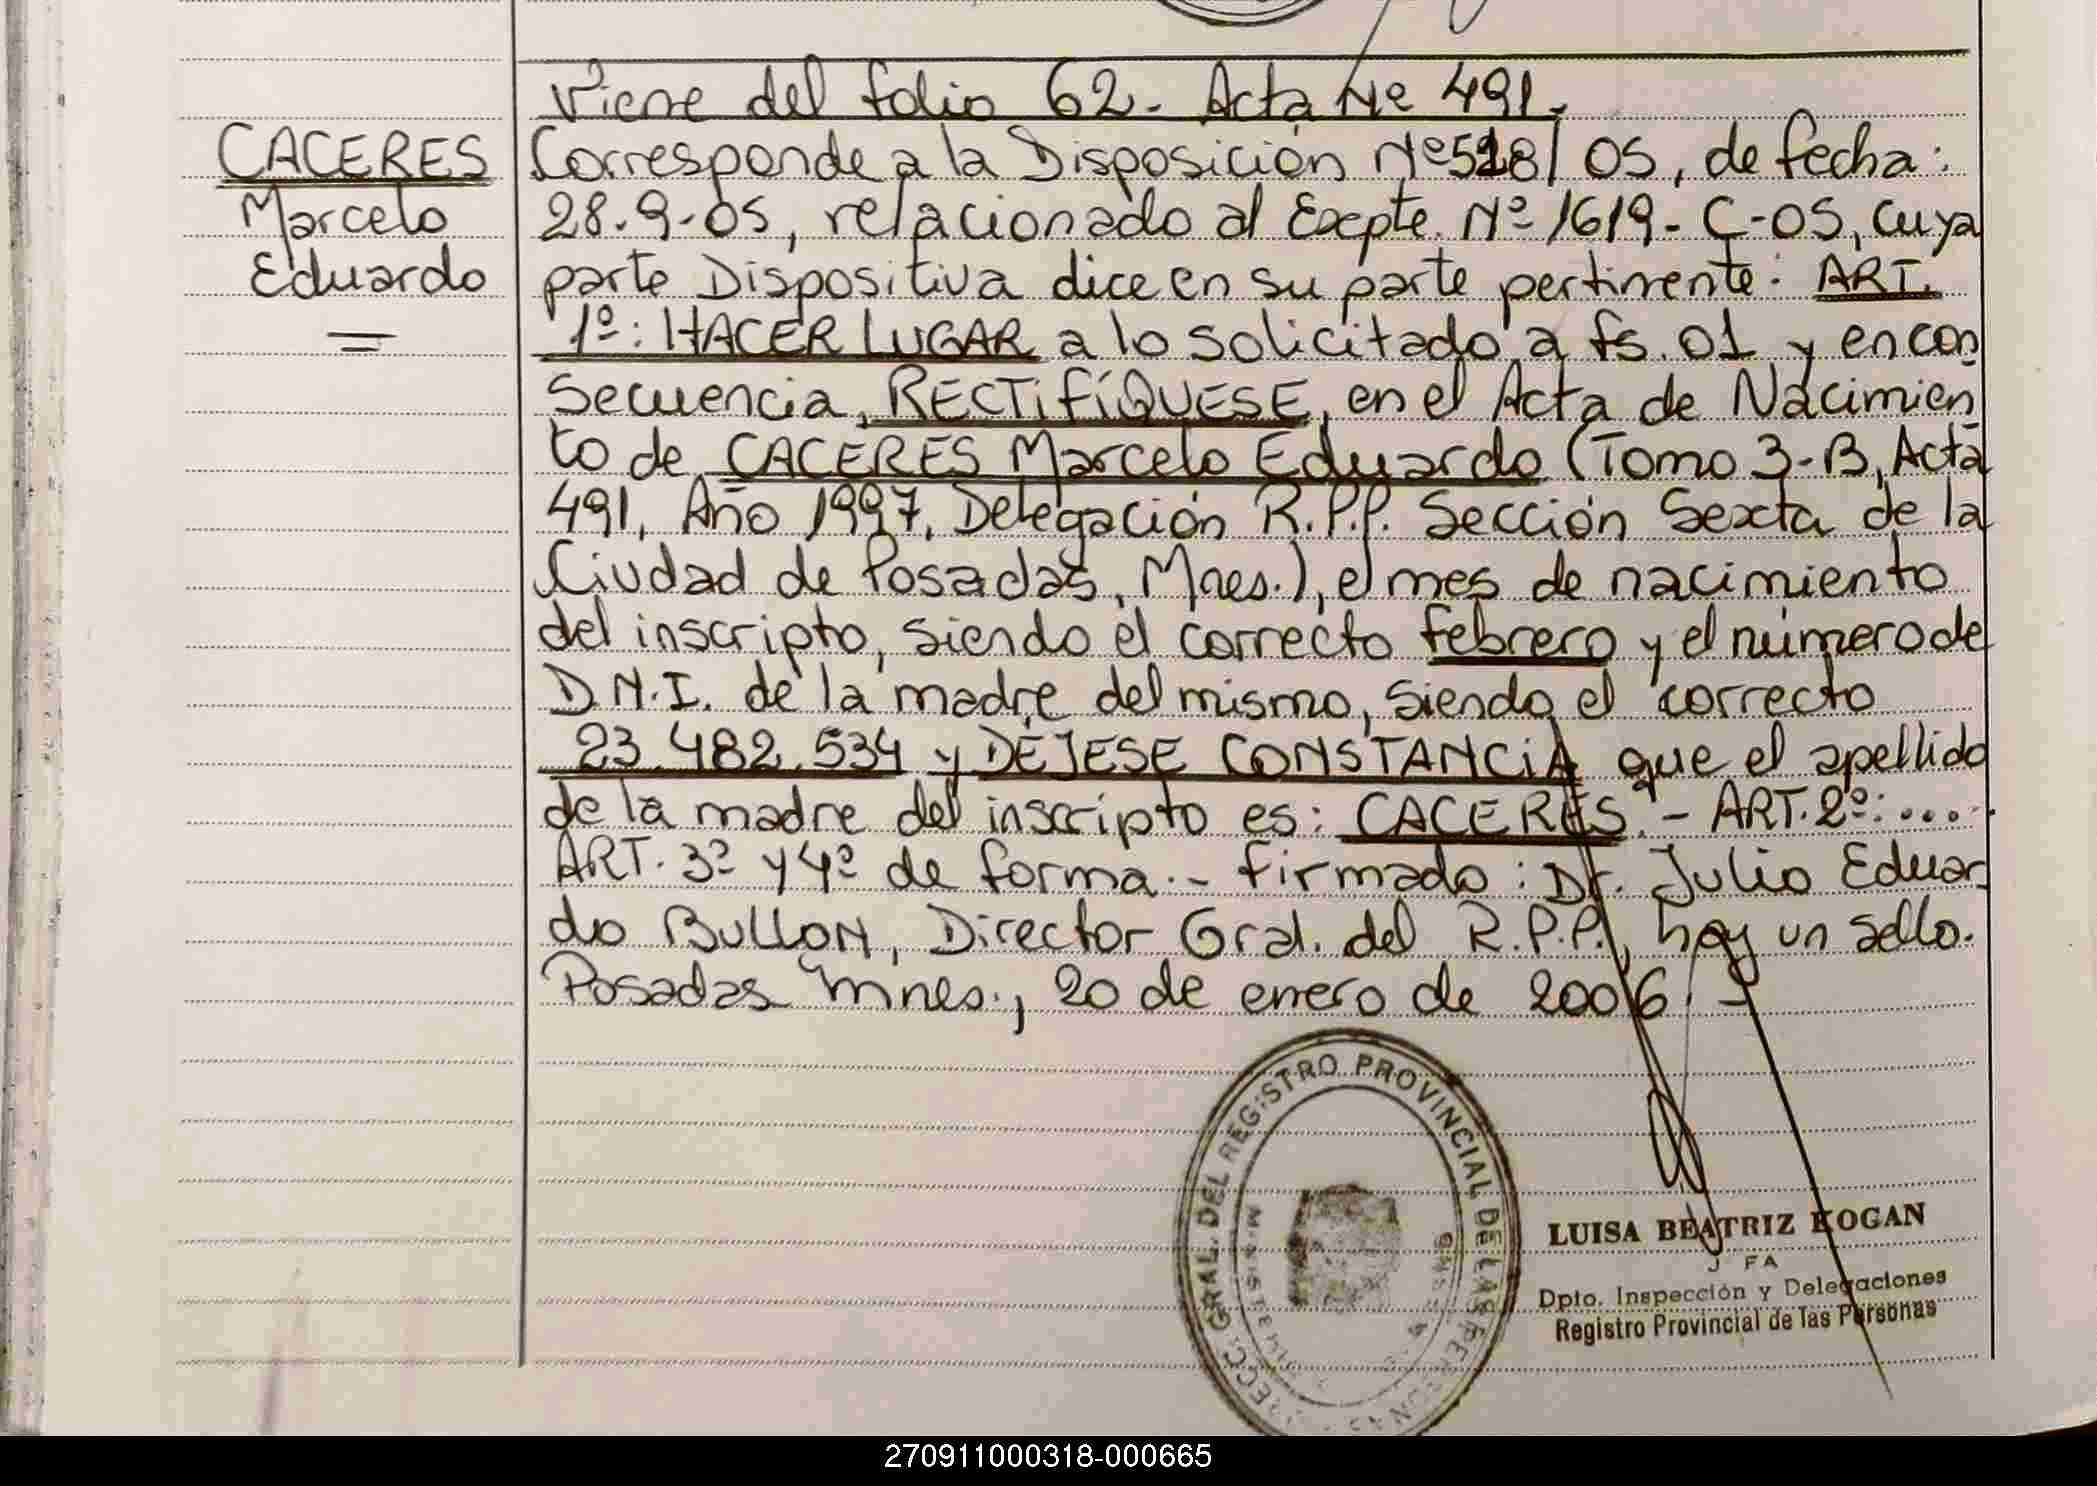 Viene del folio 62.- Acta Nº 491.
CACERES
Marcelo
Eduardo
Corresponde a la Disposición Nº 528/05, de fecha:
28-9-05, relacionado al Expte. Nº 1619-C-05, cuya
parte Dispositiva dice en su parte pertinente: ART.
1º: HACER LUGAR a lo solicitado a fs. 01 y en con
secuencia, RECTIFÍQUESE, en el Acta de Nacimien
to de CACERES Marcelo Eduardo (Tomo 3-B, Acta
491, Año 1997, Delegación R.P.P. Sección Sexta de la
Ciudad de Posadas, Mnes.), el mes de nacimiento
del inscripto, siendo el correcto febrero y el número de
D.N.I. de la madre del mismo, siendo el correcto
23.482.534 y DÉJESE CONSTANCIA que el apellido
de la madre del inscripto es: CACERES.- ART. 2º:....
ART. 3º y 4º de forma.- Firmado: Dr. Julio Eduar
do BULLON, Director Gral. del R.P.P., hay un sello.
Posadas Mnes., 20 de enero de 2006.-
DIRECC. GRAL. DEL REGISTRO PROVINCIAL DE LAS PERSONAS
LUISA BEATRIZ KOGAN
J FA
Dpto. Inspección y Delegaciones
Registro Provincial de las Personas
270911000318-000665